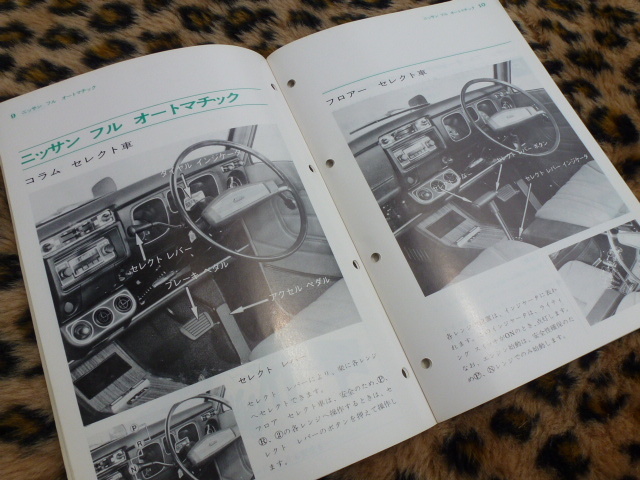 9 ニッサン フル オートマチック
ニッサン フル オートマチック
コラム セレクト車
ダイヤル インジケータ
セレクト レバー
ブレーキ ペダル
アクセル ペダル
P
R
N
セレクト レバー
セレクト レバーにより、車に各レンジ
へセレクトできます。
フロア セレクト車は、安全のため、Ⓟ、
Ⓡ、②の各レンジへ操作するときは、セ
レクト レバーのボタンを押えて操作し
ます。
ニッサン フル オートマチック 10
フロアー セレクト車
セレクト レバー ボタン
セレクト レバー インジケータ